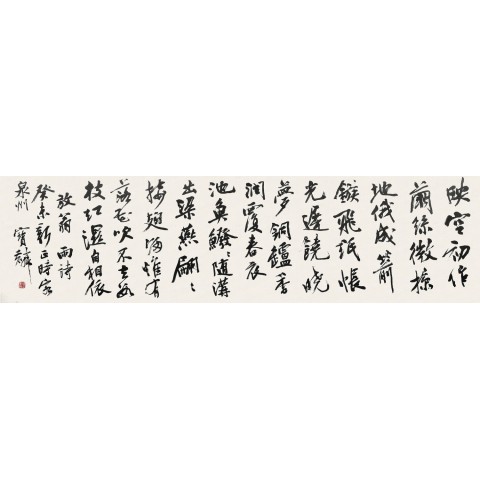 映空初作
繭絲微掠
地俄成箭
鏃飛紙帳
光遲饒曉
夢銅鑪香
潤覆春衣
池魚鱍〻随溝
出梁燕翩〻
接翅歸惟有
落花吹不去數
枝紅濕自相依
放翁 雨詩
癸未新正時客
泉州 寶麟